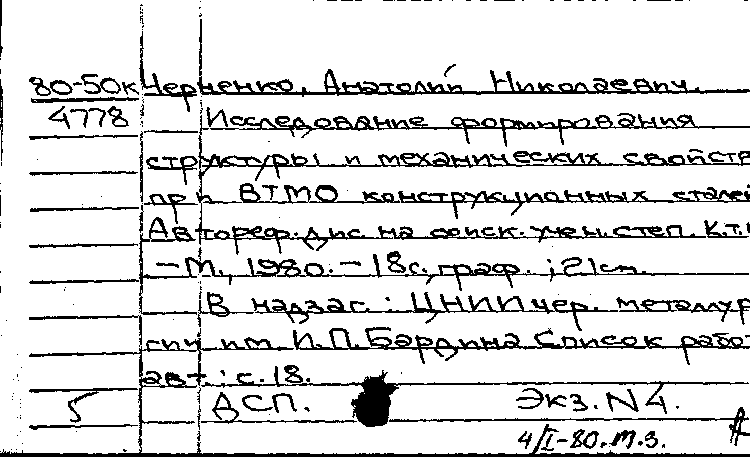 80-50к Черненко, Анатолий Николаевич.
4778 Исследование формирования
структуры и механических свойств
при ВТМО конструкционных сталей
Автореф. дис. на соиск. учен. степ. к.т.
—М., 1980. — 18с, граф. ; 21см.
В надзаг. : ЦНИИ чер. металлур
гии им. И.П. Бардина Список работ
авт : с. 18.
5 ДСП. Экз. N4.
4/I-80. т.з.